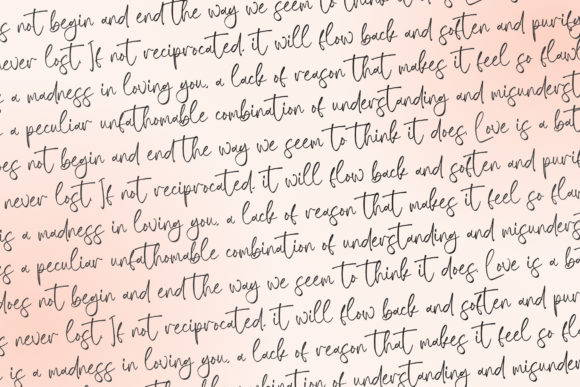 s not begin and end the way we seem to think it
never lost If not reciprocated, it will flow back and soften and purify
is a madness in loving you, a lack of reason that makes it feel so flawl
a peculiar unfathomable combination of understanding and misunderst
oes not begin and end the way we seem to think it does. Love is a bat
never lost If not reciprocated, it will flow back and soften and purif
is a madness in loving you, a lack of reason that makes it feel so flaw
s a peculiar unfathomable combination of understanding and misunders
does not begin and end the way we seem to think it does. Love is a ba
s never lost If not reciprocated, it will flow back and soften and pur
is a madness in loving you, a lack of reason that makes it feel so fla
a peculiar unfathomable combination of understanding and misunder